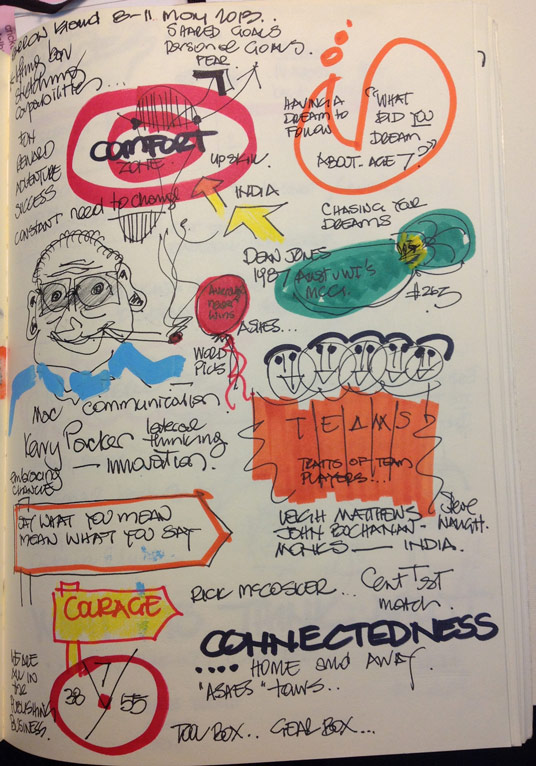 8-11 MAY 2013...
SHARED GOALS
PERSONAL GOALS.
FEAR
sketching
capabilities...
HAVING A
DREAM to
FOLLOW
"WHAT
DID YOU
DREAM
ABOUT - AGE 7?"
COMFORT
ZONE
UPSKILL
FUN
REWARD
ADVENTURE
SUCCESS
CONSTANT need to change
INDIA
CHASING YOUR
DREAMS
DEAN JONES
198
AUST V WI's
MCG.
#265
WINS
ASHES...
WORD
PICS
MAC communication.
Kerry Packer lateral
thinking
— INNOVATION.
EMBRACING
CHANGE
TEAMS
TRAITS OF TEAM
PLAYERS...
SAY WHAT YOU MEAN
MEAN WHAT YOU SAY
LEIGH MATTHEWS
JOHN BUCHANAN -
Steve
WAUGH.
MONKS — INDIA.
COURAGE
RICK McCOSKER... Cent Test
match.
CONNECTEDNESS
.... HOME and AWAY.
"ASHES" TOURS..
WE ARE
ALL IN
THE
PUBLISHING
BUSINESS.
7
38 55
TOOL BOX.. GEAR BOX...